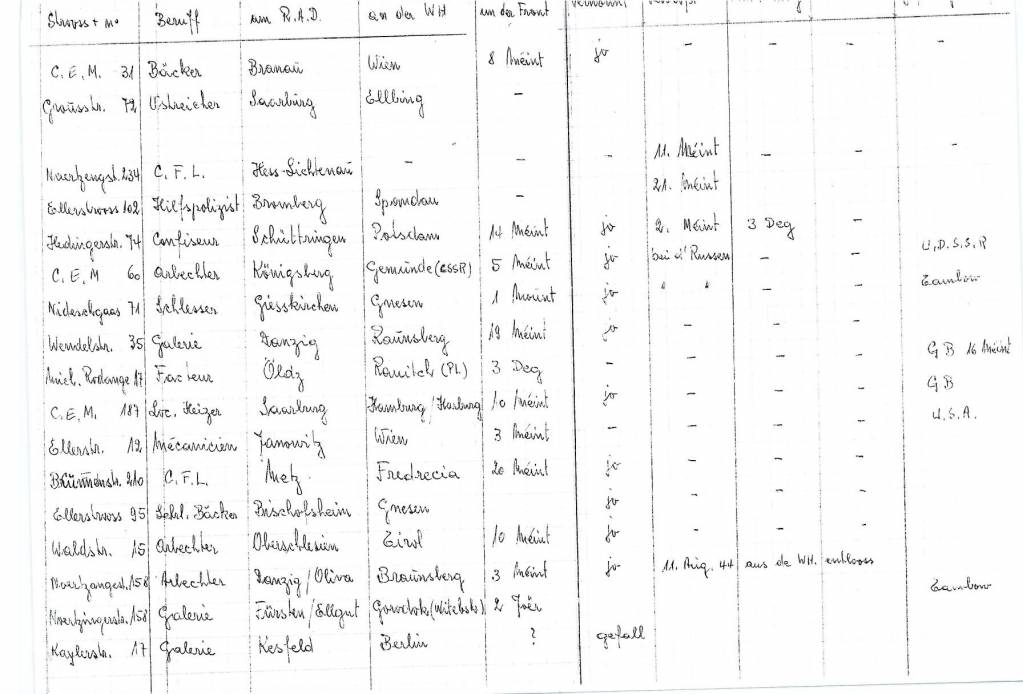 Strooss + no Beruff am R.A.D. an der WH un der Front
C.E.M. 31 Bäcker Branau Wien 8 Méint jo - - -
Groússtr. 72 Ustreicher Saarbürg Ellbing -
Noertzengst. 234 C.F.L. Hess-Lichtenau - - - 11. Méint - - -
Ellerstrooss 102 Hilfspolizist Bromberg Spandau - 21. Méint
Hedingerstr. 74 Confiseur Schüttringen Potsdam 14 Méint jo 2. Méint 3 Deg -
C.E.M 60 Arbechter Königsberg Gemünde (CSSR) 5 Méint jo bei d' Russen - - U.D.S.S.R
Nideschgaas 71 Schlesser Giesskirchen Gnesen 1 Mount jo " " - - Tambow
Wendelstr. 35 Galerie Danzig Raünsberg 19 Méint jo - - -
Mich. Rodange 17 Facteur Öldz Rawitch (PL) 3 Deg - - - - GB 16 Méint
C.E.M. 187 Loc. Heizer Saarburg Hamburg/Harburg 10 Méint jo - - - GB
Ellerstr. 12 Mécanicien Janowitz Wien 3 Méint - - - - U.S.A.
Brünnenstr. 210 C.F.L. Metz. Fredrecia 20 Méint jo - - -
Ellerstrooss 95 Lehrl. Bäcker Bischofsheim Gnesen jo - - -
Waldstr. 15 Arbechter Oberschlesien Tirol 10 Méint jo - - -
Noertzengst. 158 Arbechter Danzig/Oliva Braunsberg 3 Méint jo 11. Aug. 44 aus de WH. entlooss
Noertzingerstr. 158 Galerie Fürsten/Ellgut Gorodok (Witebsk) 2 Joër Tambow
Kaylerstr. 17 Galerie Kesfeld Berlin ? gefall